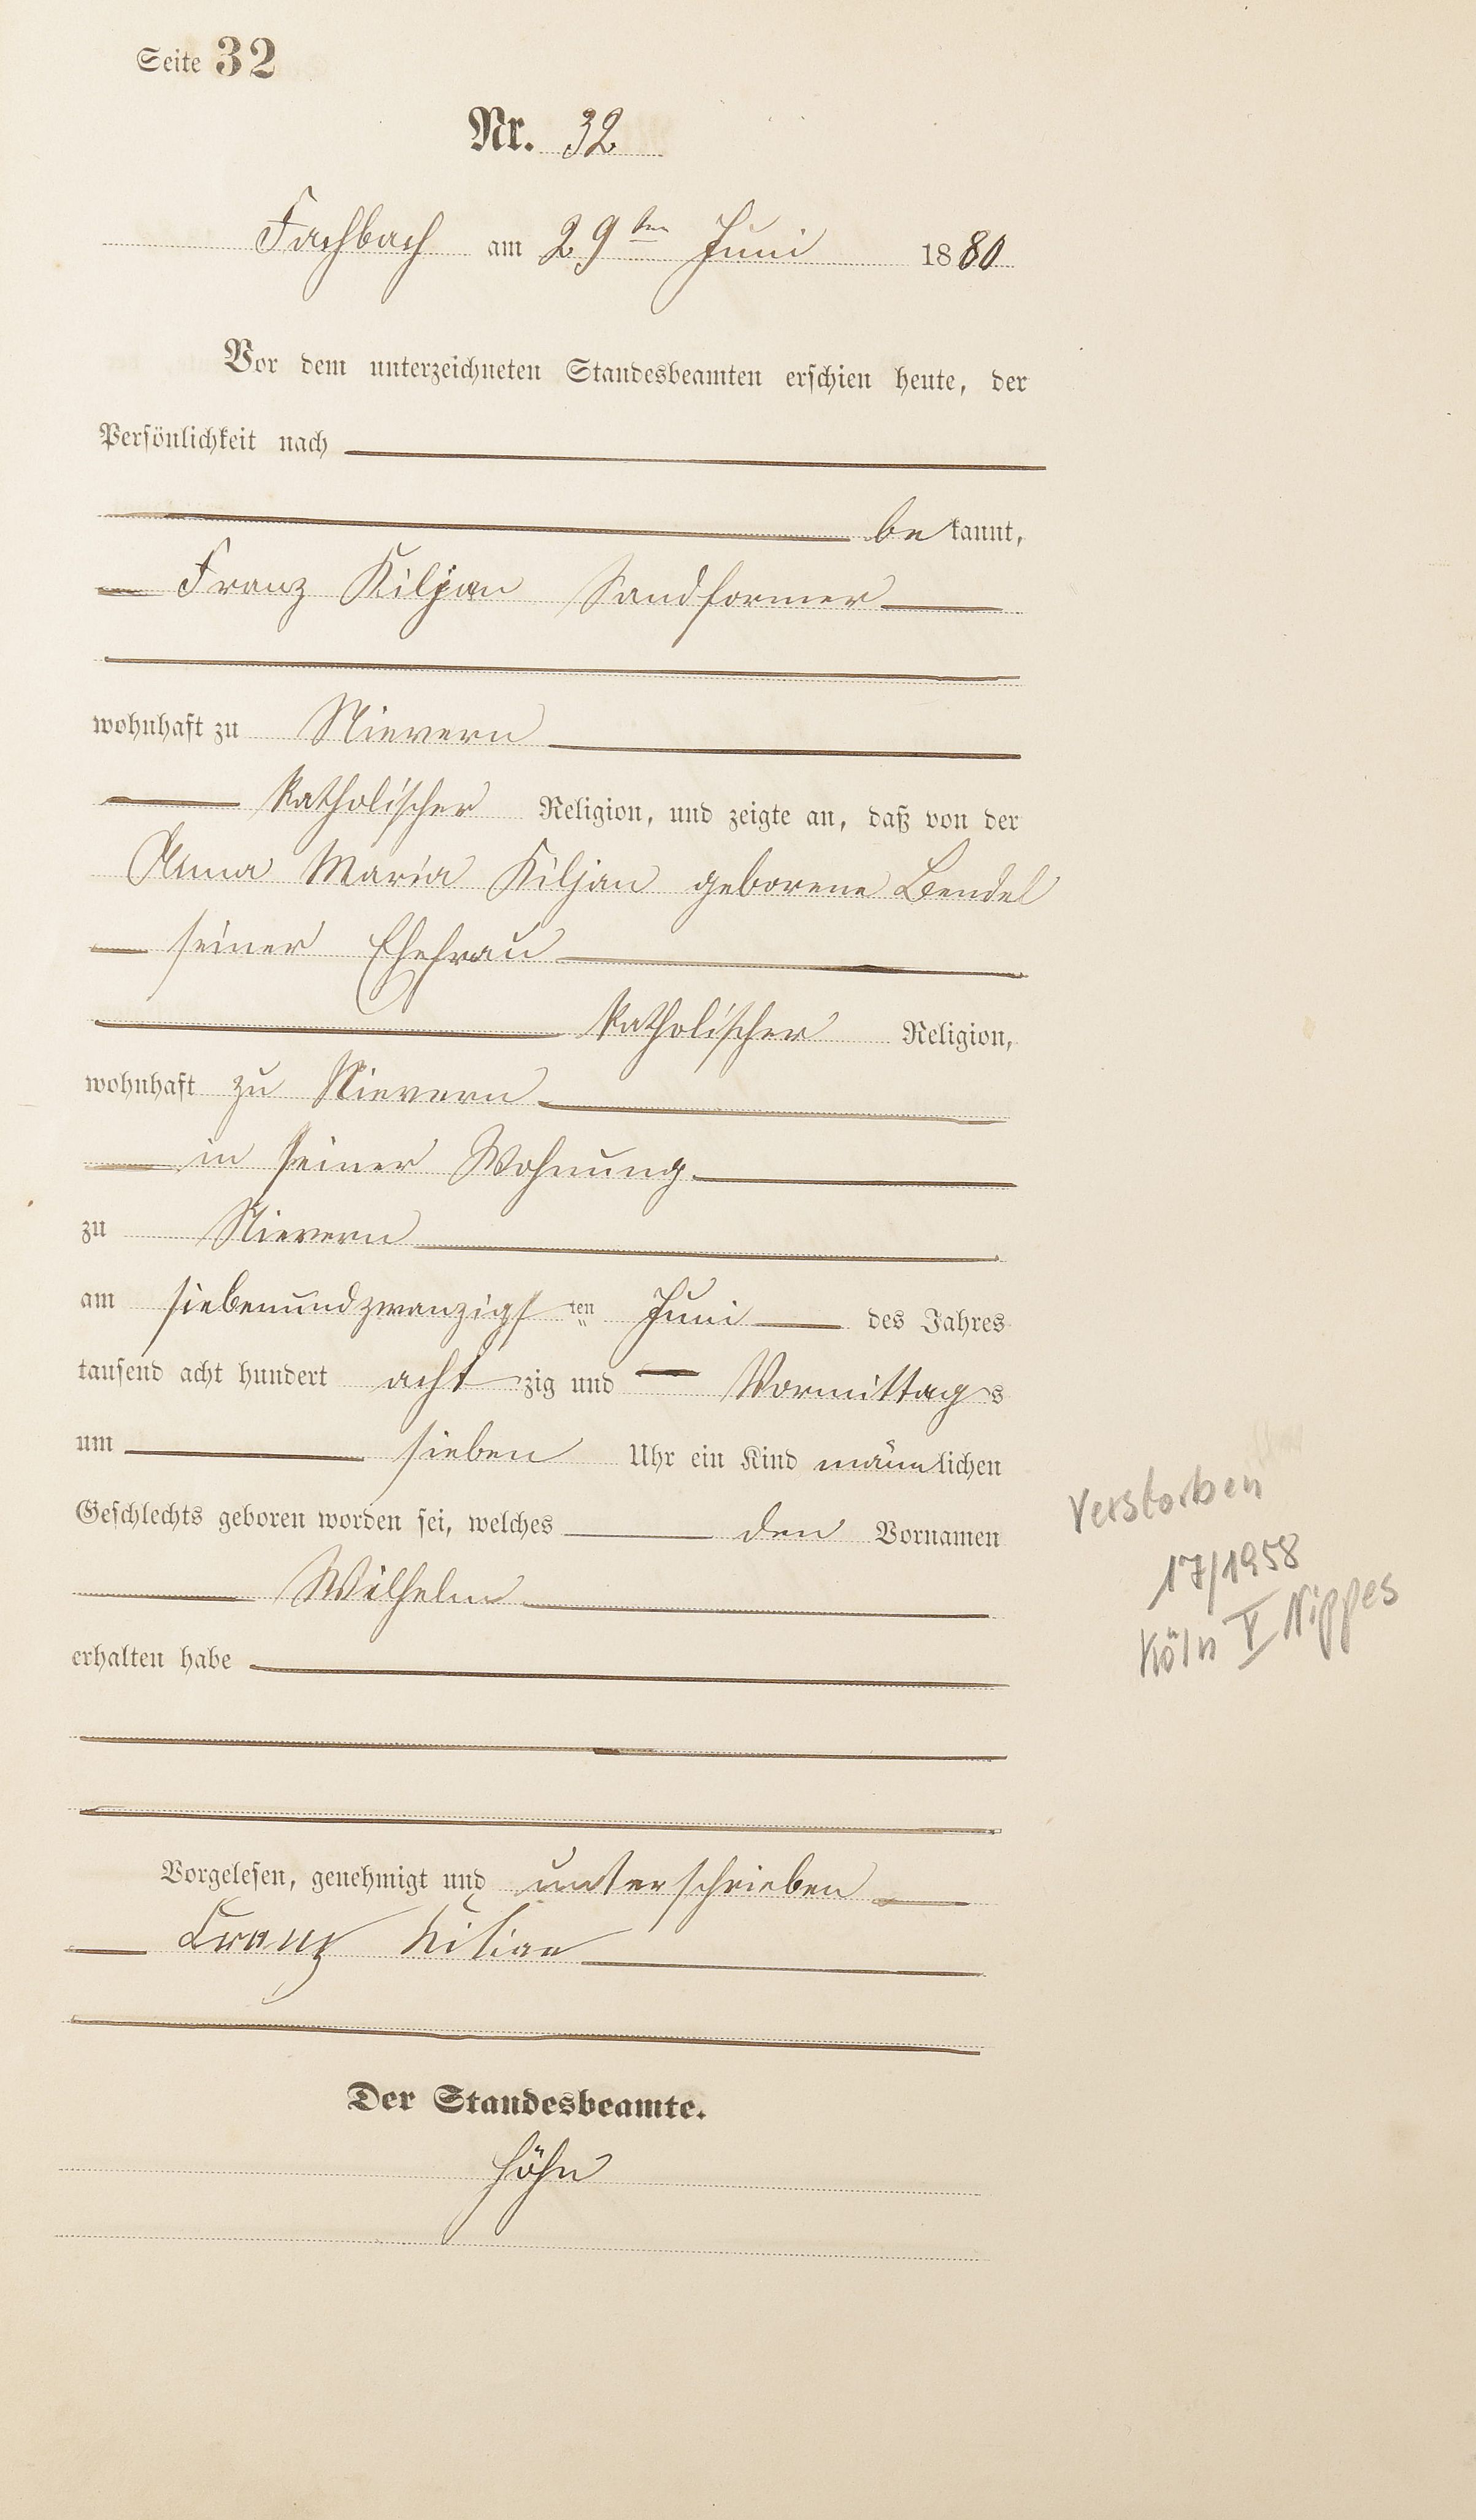 Seite 32
Nr. 32
Fachbach am 29ten Juni 1880
Vor dem unterzeichneten Standesbeamten erschien heute, der
Persönlichkeit nach
bekannt,
Franz Kiljan Sandformer
wohnhaft zu Nievern
katholischer Religion, und zeigte an, daß von der
Anna Maria Kiljan geborene Bendel
seiner Ehefrau
katholischer Religion,
wohnhaft zu Nievern
in seiner Wohnung
zu Nievern
am siebenundzwanzigsten Juni des Jahres
tausend acht hundert achtzig und Vormittags
um sieben Uhr ein Kind männlichen
Geschlechts geboren worden sei, welches den Vornamen
Wilhelm
erhalten habe
Verstorben
17/1958
Köln V Nippes
Vorgelesen, genehmigt und unterschrieben
Franz Kilian
Der Standesbeamte.
Höhn